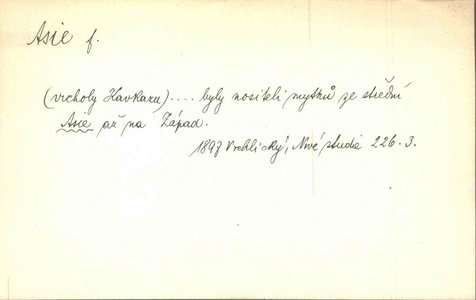 Asie f.
(vrcholy Kavkazu).... byly nositeli mythů ze střední
Asie až na Západ.
1897 Vrchlický, Nové studie 226.3.